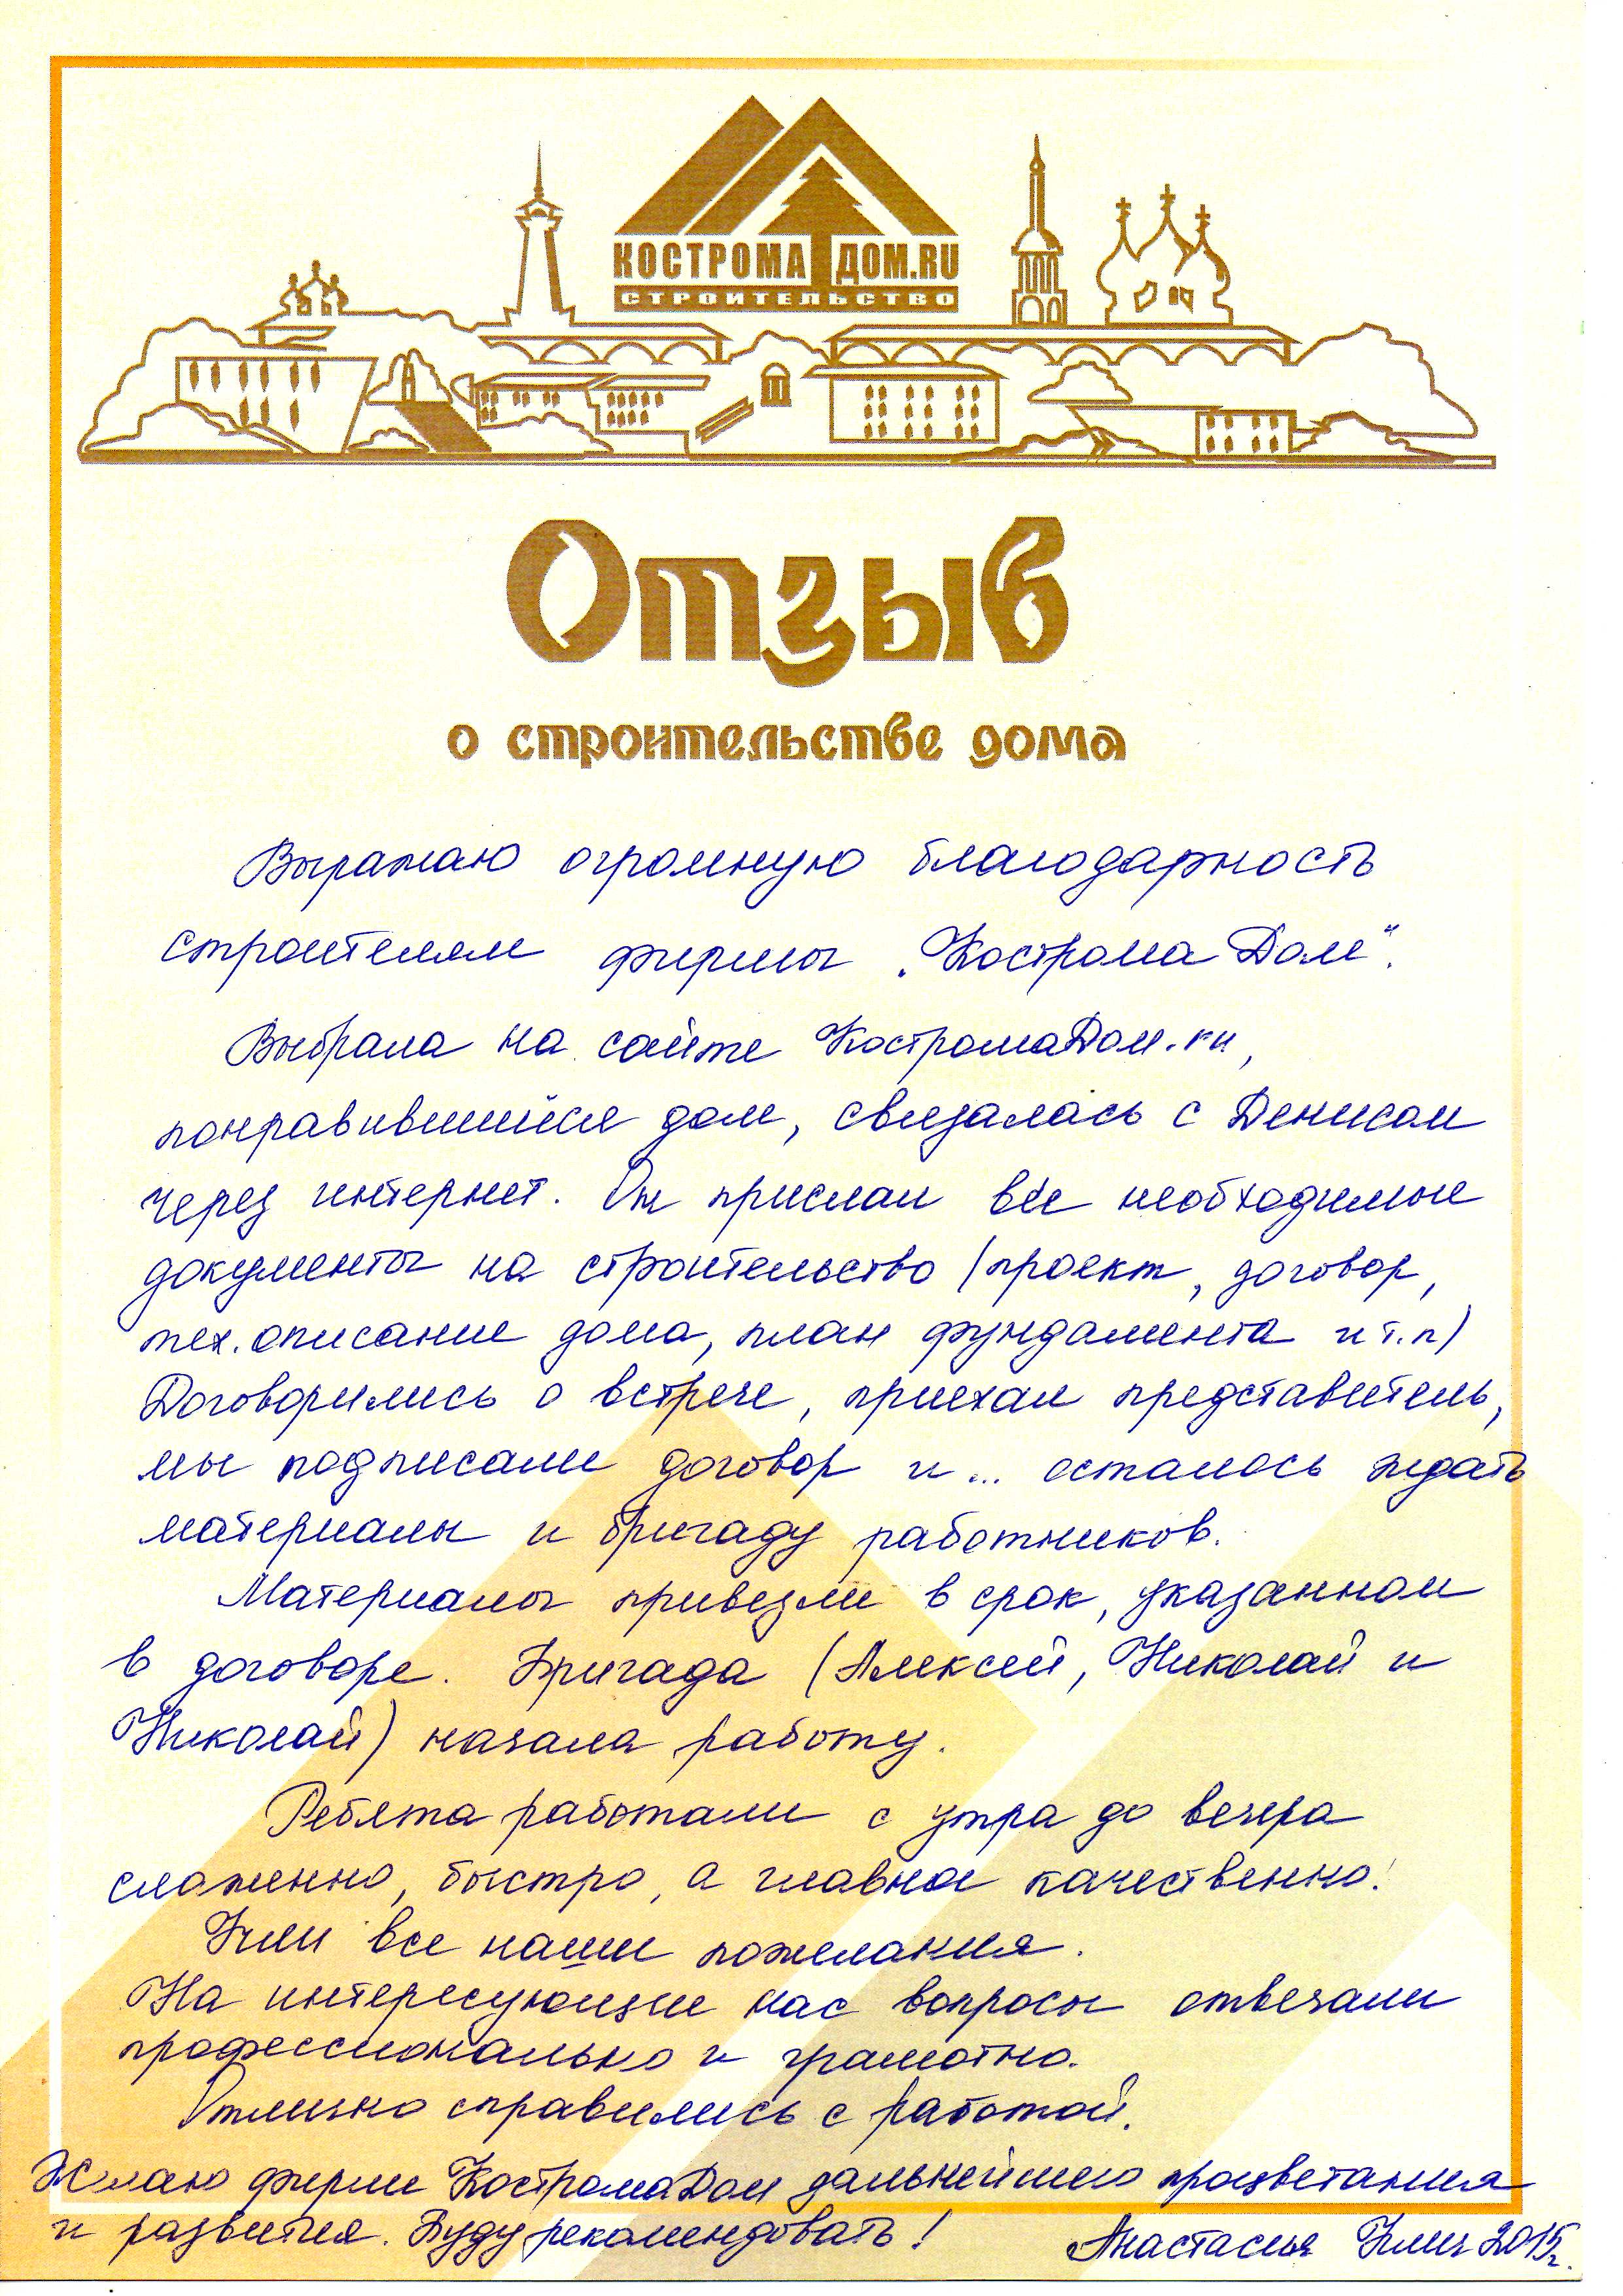 КОСТРОМА ДОМ.RU
СТРОИТЕЛЬСТВО
Отзыв
о строительстве дома
Выражаю огромную благодарность
строителям фирмы „Кострома Дом“.
Выбрала на сайте КостромаДом.ru,
понравившийся дом, связалась с Денисом
через интернет. Он прислал все необходимые
документы на строительство (проект, договор,
тех. описание дома, план фундамента и т.п)
Договорились о встрече, приехал представитель,
мы подписали договор и... осталось ждать
материалы и бригаду работников.
Материалы привезли в срок, указанном
в договоре. Бригада (Алексей, Николай и
Николай) начала работу.
Ребята работали с утра до вечера
слаженно, быстро, а главное качественно!
все наши пожелания.
На интересующие нас вопросы отвечали
профессионально и грамотно.
Отлично справились с работой.
Желаю фирме КостромаДом дальнейшего процветания
и развития. Буду рекомендовать! Анастасия 2015г.